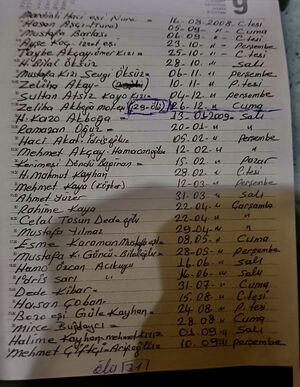 Hacı eşi Nura - 16-08-2008 C.tesi
Hasan Aşçı (Nuru) 05.09 " Cuma
Mustafa Barlas 06.09 - C.tesi
Ayşe Koç. izzet eşi 23.10 - Perşembe
Tayibe Akbaş Ömer Kızı 25-10 - C.tesi
H. Bilal Öksüz 28.10 - Salı
Mustafa Kızı Sevgi Öksüz 06-11 - Perşembe
Zeliha Akay 10.11 - P.tesi
Sultan Afsız Kaya Kızı 04-12 Perşembe
Zeliha Akboğa (29-06) 26-12 Cuma
H. Kazo Akboğa - 13-01-2009 Salı
Ramazan Oğuz - 20-01 - "
Hacı Akat 05.02 - Perşembe
Mehmet Akçay Hamacanoğlu 12-02 - "
Kerimesi Döndü 15.02 " Pazar
H. Mahmut Kayhan 28.02 " C.tesi
Mehmet Kaya (Köşker) 12-03 - Perşembe
Ahmet Yüzer 31-03 - Salı
Rahime Kaya 22-04 " Çarşamba
Celal Tosun Dedeoğlu 22-04 " "
Mustafa Yılmaz 29.04 " "
Esme Karaman Mustafa eşi - 08.05 - Cuma
Mustafa Kı Güncü - Bilaloğlu - 28-05 - Perşembe
Hamo Özcan 11.06 - Salı
İdris Sarı 16-06 - Salı
Dede Kibar 31-07 - Cuma
Hasan Çoban 15.08 - C.tesi
Bozo eşi Güle Kayhan - 24.08 " P.tesi
Mirce Buğdaycı - 28.08 " Cuma
Halime Kayhan Mehmet Kızı 01-09 " Salı
Mehmet Çiftçi 10.09 Perşembe